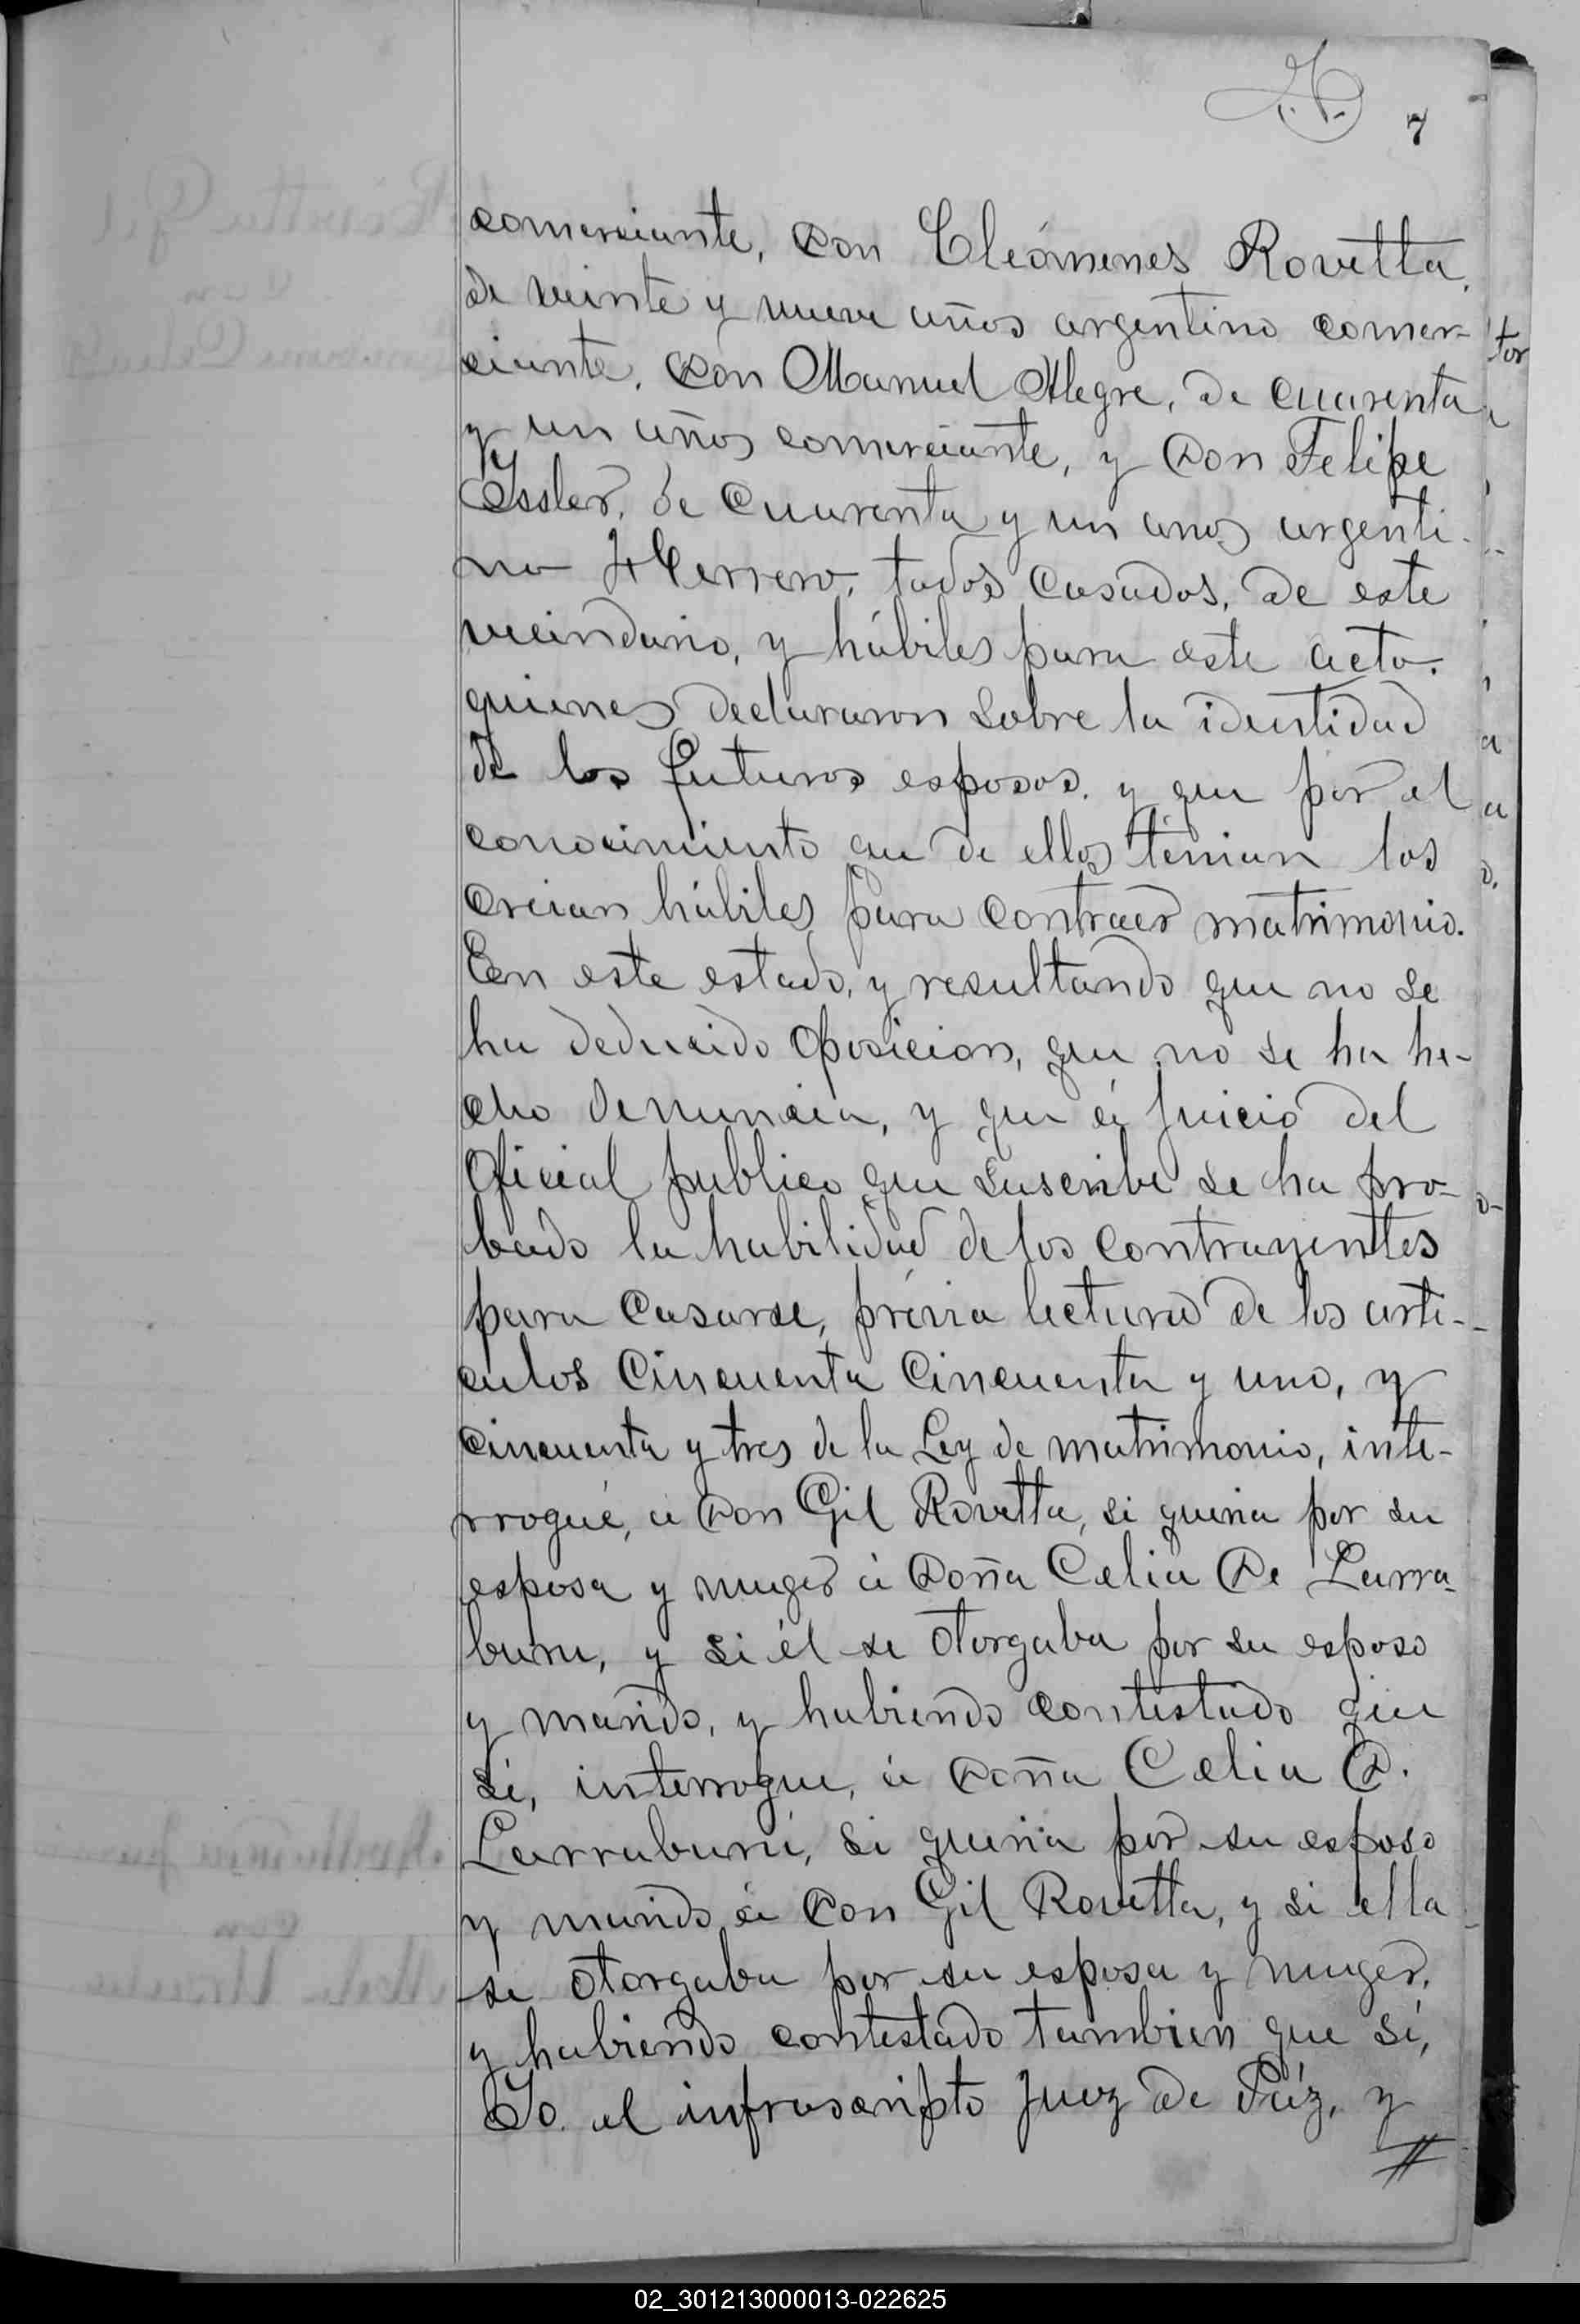 7
comerciante, Don Cleómenes Rovetta,
de veinte y nueve años argentino comer-
ciante, Don Manuel Alegre, de cuarenta
y un años comerciante, y Don Felipe
Yssler, de cuarenta y un anos argenti-
no Herrero, todos casados, de este
vecindario, y hábiles para este acto.
quienes declararon sobre la identidad
de los futuros esposos, y que por el
conocimiento que de ellos tenian los
creian hábiles para contraer matrimonio.
En este estado, y resultando que no se
ha deducido oposicion, que no se ha he-
cho denuncia, y que á juicio del
Oficial publico que suscribe se ha pro-
bado la habilidad de los contrayentes
para casarse, prévia lectura de los arti-
culos cincuenta cincuenta y uno, y
cincuenta y tres de la Ley de matrimonio, inte-
rrogué, á Don Gil Rovetta, si queria por su
esposa y muger á Doña Celia De Larra-
buru, y si él se otorgaba por su esposo
y marido, y habiendo contestado que
si, interrogue, á Doña Celia D.
Larraburú, si queria por su esposo
y marido á Don Gil Rovetta, y si ella
se otorgaba por su esposa y muger,
y habiendo contestado tambien que sí,
Yo el infrascripto Juez de Páz, y
//
tor
02_301213000013-022625